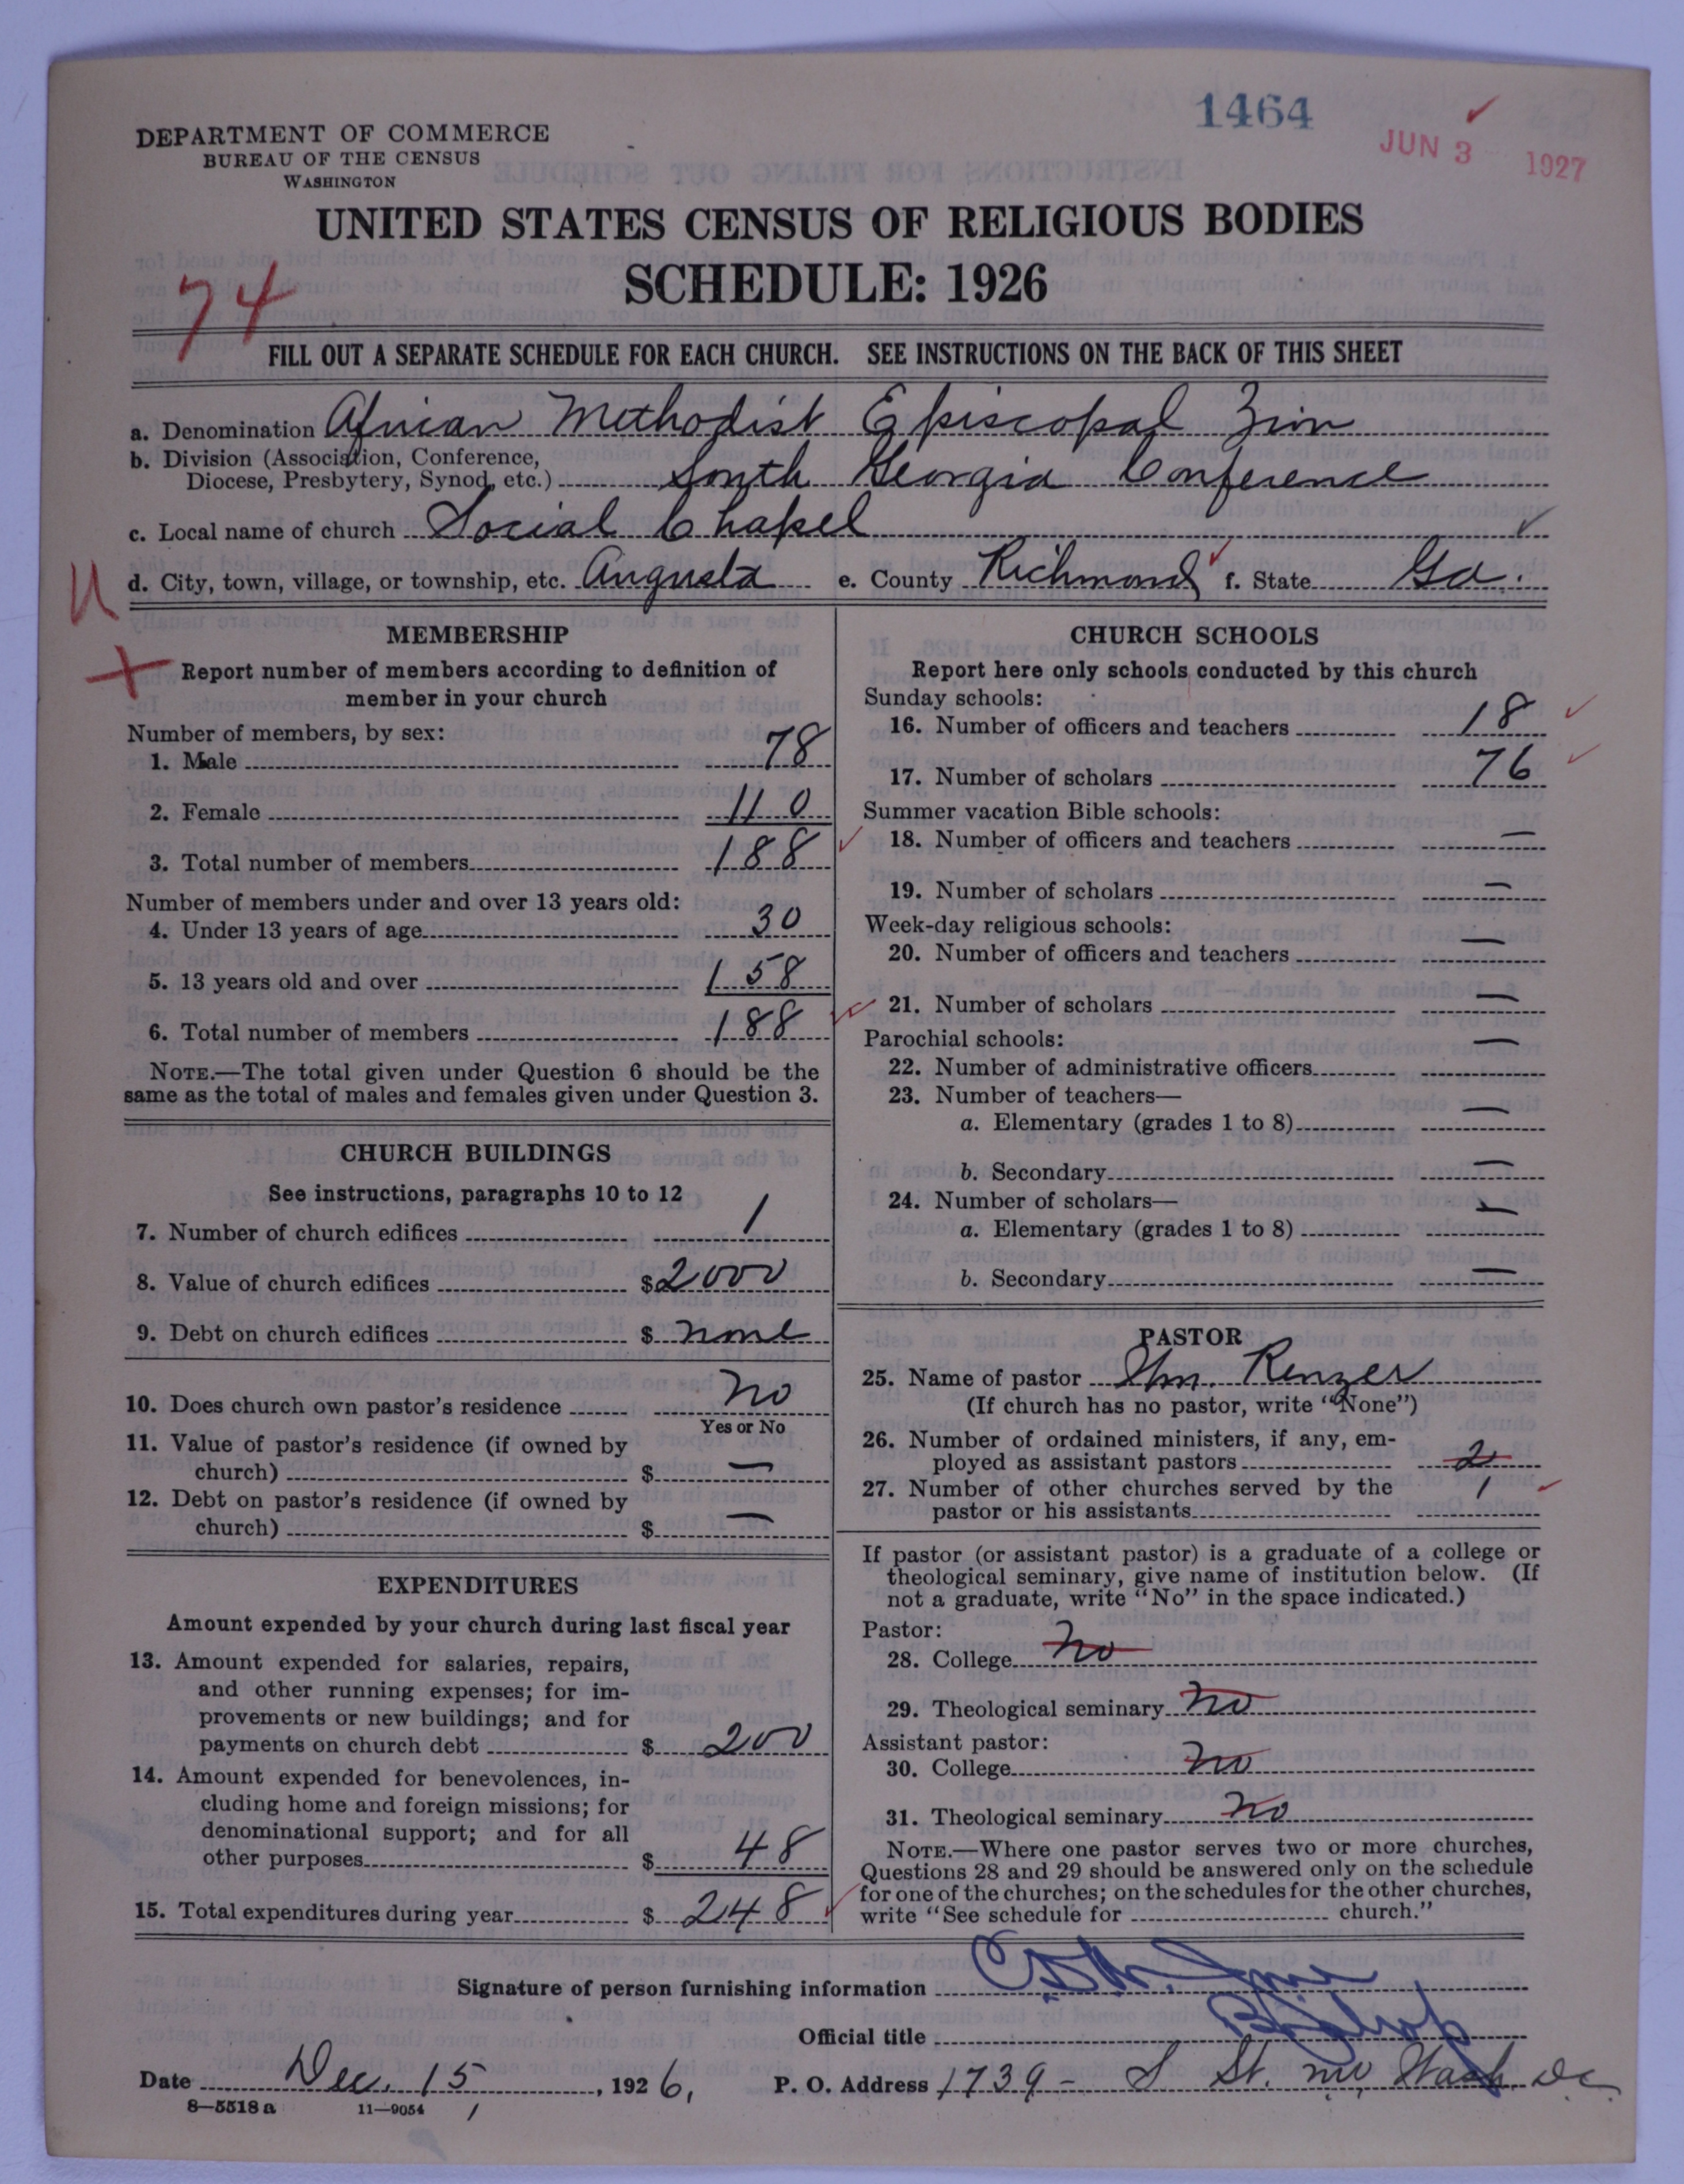 1464
JUN 3 1927
DEPARTMENT OF COMMERCE
BUREAU OF THE CENSUS
WASHINGTON
UNITED STATES CENSUS OF RELIGIOUS BODIES
SCHEDULE: 1926
74
FILL OUT A SEPARATE SCHEDULE FOR EACH CHURCH. SEE INSTRUCTIONS ON THE BACK OF THIS SHEET
a. Denomination African Methodist Episcopal Zion
b. Division (Association, Conference,
Diocese, Presbytery, Synod, etc.) South Georgia Conference
c. Local name of church Social Chapel
d. City, town, village, or township, etc. Augusta e. County Richmond f. State Ga.
U
MEMBERSHIP
Report number of members according to definition of
member in your church
Number of members, by sex:
1. Male 78
2. Female 110
3. Total number of members 188
Number of members under and over 13 years old:
4. Under 13 years of age 30
5. 13 years old and over 158
6. Total number of members 188
NOTE.—The total given under Question 6 should be the
same as the total of males and females given under Question 3.
CHURCH BUILDINGS
See instructions, paragraphs 10 to 12
7. Number of church edifices 1
8. Value of church edifices $2000
9. Debt on church edifices $ none
10. Does church own pastor's residence no
Yes or No
11. Value of pastor's residence (if owned by
church) $ —
12. Debt on pastor's residence (if owned by
church) $ —
EXPENDITURES
Amount expended by your church during last fiscal year
13. Amount expended for salaries, repairs,
and other running expenses; for im-
provements or new buildings; and for
payments on church debt $ 200
14. Amount expended for benevolences, in-
cluding home and foreign missions; for
denominational support; and for all
other purposes $ 48
15. Total expenditures during year $ 248
CHURCH SCHOOLS
Report here only schools conducted by this church
Sunday schools:
16. Number of officers and teachers 18
17. Number of scholars 76
Summer vacation Bible schools:
18. Number of officers and teachers —
19. Number of scholars —
Week-day religious schools:
20. Number of officers and teachers —
21. Number of scholars —
Parochial schools:
22. Number of administrative officers —
23. Number of teachers—
a. Elementary (grades 1 to 8) —
b. Secondary —
24. Number of scholars—
a. Elementary (grades 1 to 8) —
b. Secondary —
PASTOR
25. Name of pastor Wm. Renzer
(If church has no pastor, write "None")
26. Number of ordained ministers, if any, em-
ployed as assistant pastors 2
27. Number of other churches served by the
pastor or his assistants 1
If pastor (or assistant pastor) is a graduate of a college or
theological seminary, give name of institution below. (If
not a graduate, write "No" in the space indicated.)
Pastor:
28. College no
29. Theological seminary no
Assistant pastor:
30. College no
31. Theological seminary no
NOTE.—Where one pastor serves two or more churches,
Questions 28 and 29 should be answered only on the schedule
for one of the churches; on the schedules for the other churches,
write "See schedule for church."
Signature of person furnishing information
Official title Bishop
Date Dec. 15, 1926, P. O. Address 1739 - S St. NW Wash. DC
8—5518a 11—9054